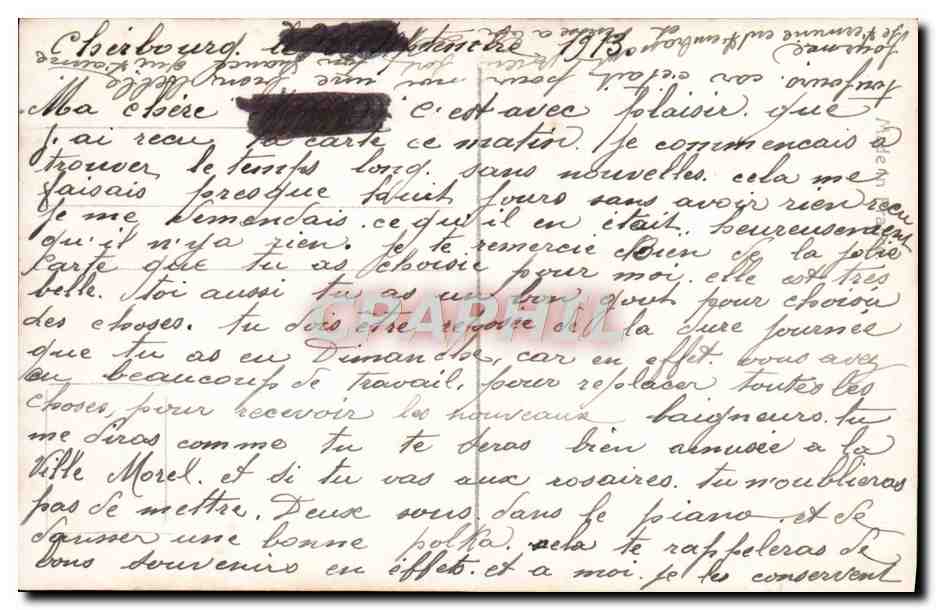 Cherbourg. le septembre 1913.
Ma chère c'est avec plaisir que
j'ai recu ta carte ce matin. je commencais a
trouver le temps long. sans nouvelles. cela me
faisais presque huit jours sans avoir rien recu
je me demendais. ce qu'il en était. heureusement
qu'il n'ya rien. je te remercie bien de la jolie
carte que tu as choisie pour moi. elle est très
belle. toi aussi tu as un bon gout pour choisir
des choses. tu dois etre de la dure journée
que tu as eu Dimanche, car en effet. vous avez
eu beaucoup de travail, pour replacer toutes les
choses, pour recevoir les nouveaux baigneurs. tu
me diras comme tu te seras bien amusée a la
Ville Morel. et si tu vas aux rosaires. tu n'oublieras
pas de mettre. Deux sous dans le piano. et de
danser une bonne polka. cela te rappeleras de
bons souvenirs en effets. et a moi. je les conservent
toujours car c'etait pour moi une
journée
CPARAMA